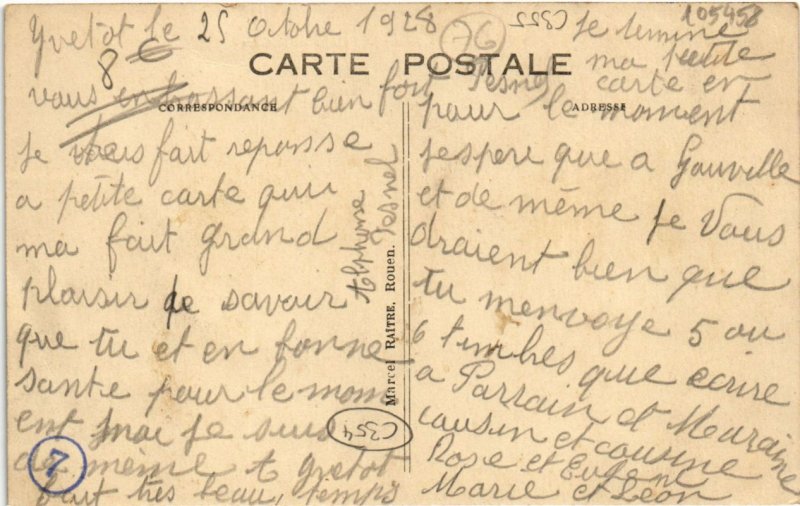 Yvetot le 25 Octobre 1928
C355
105458
8 €
76
CARTE POSTALE
CORRESPONDANCE
ADRESSE
je vous fait reponse
a petite carte qui
ma fait grand
plaisir de savoir
que tu et en bonne
sante pour le mom
ent moi je suis
de même
fait très beau temps
Alphonse
Pesnel
Marcel RAÎTRE, Rouen.
C354
7
Je termine
ma petite
carte en
vous embrassant bien fort Pesnel
pour le moment
jespere que a Gouville
et de même je Vous
draient bien que
tu menvoye 5 ou
6 timbres que ecrire
a Parrain et Maraine
cousin et cousine
Rose et Eugene
Marie et Léon